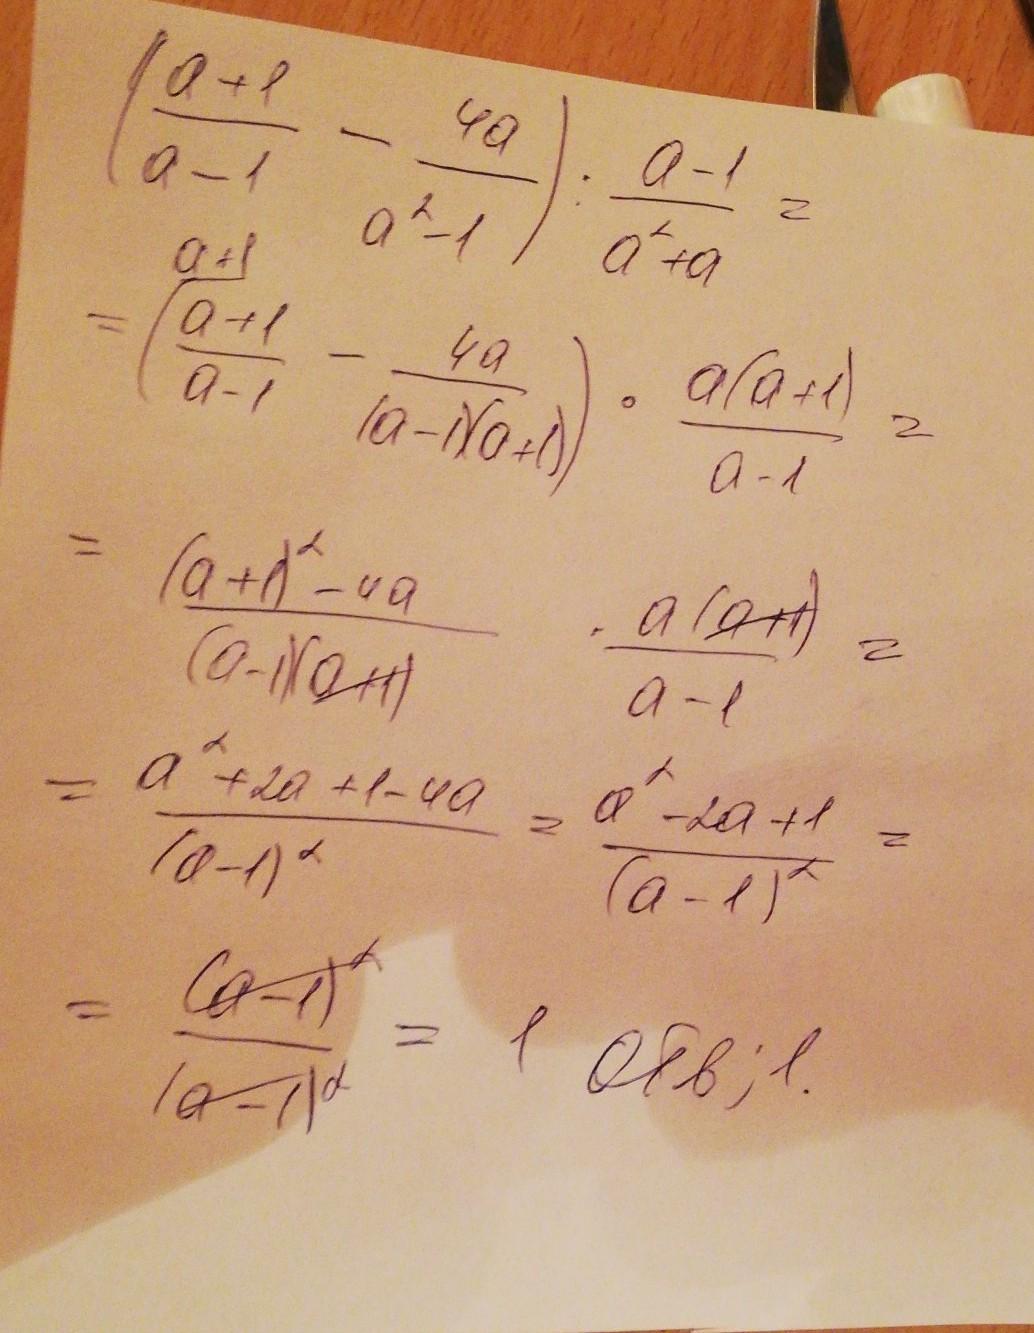 (a+1/a-1 - 4a/a²-1) : a-1/a²+a =
a+1
= (a+1/a-1 - 4a/(a-1)(a+1)) · a(a+1)/a-1 =
= (a+1)²-4a/(a-1)(a+1) · a(a+1)/a-1 =
= a²+2a+1-4a/(a-1)² = a²-2a+1/(a-1)² =
= (a-1)²/(a-1)² = 1 Отв; 1.